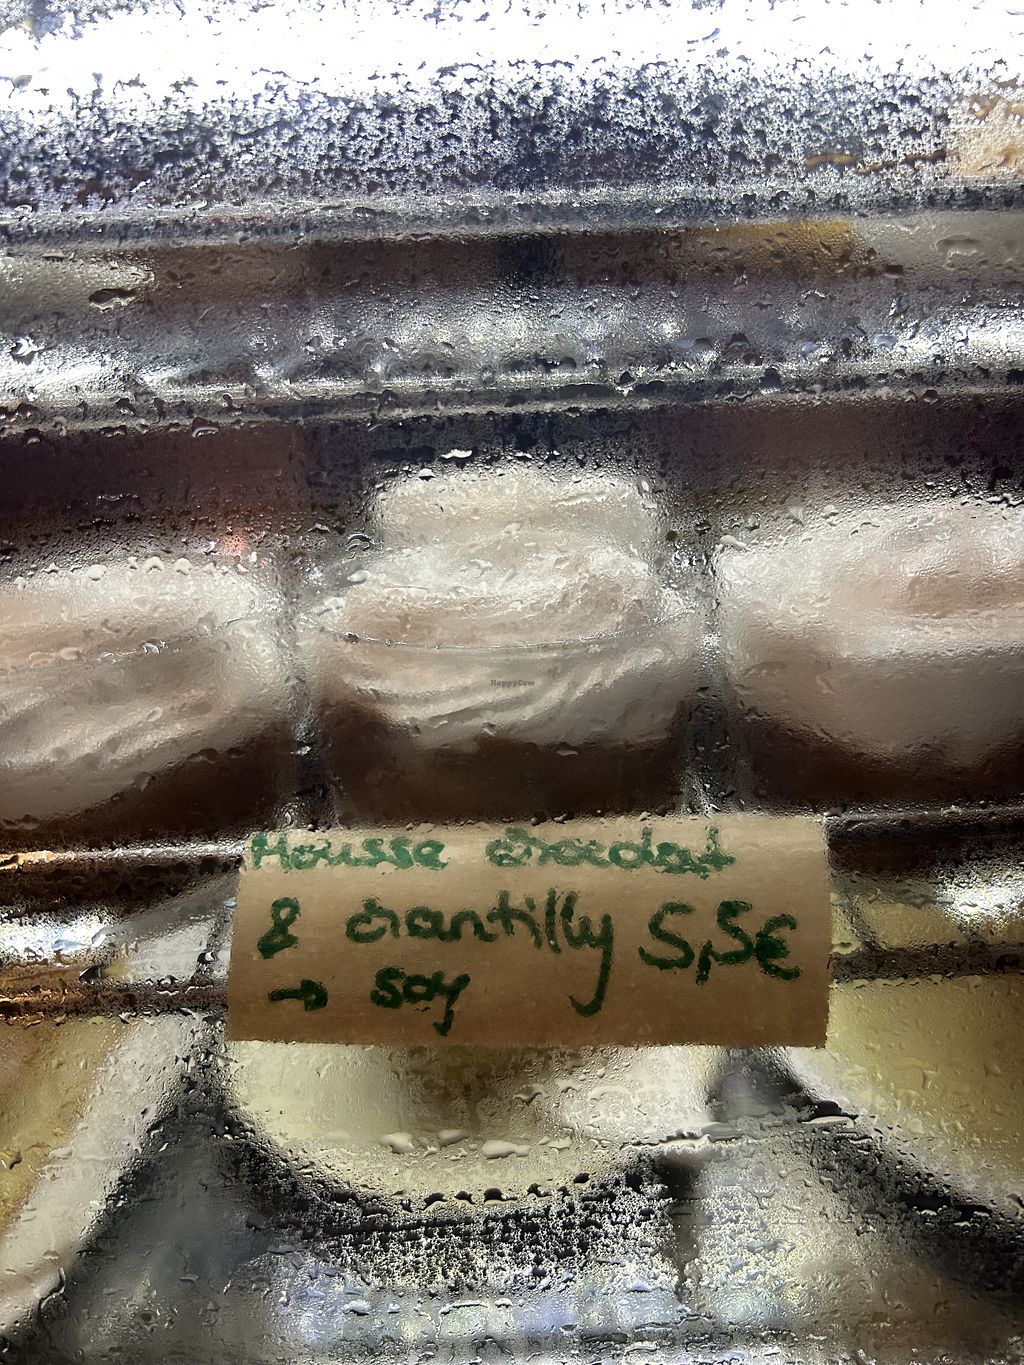 HappyCow
Mousse chocolat
& chantilly 5,5€
→ soy